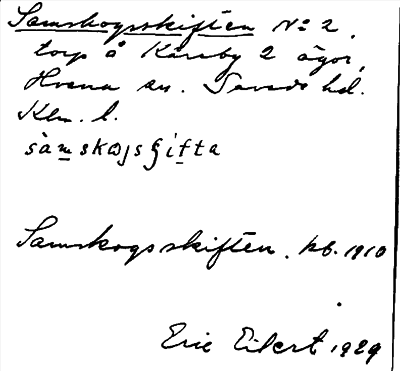 Samskogsskiften No 2,
torp å Kårby 2 ägor,
Hvena sn. Sevede hd.
Klm. l.
sàmskωgsʃifta
Samskogsskiften. kb. 1910
Eric Eilert 1929